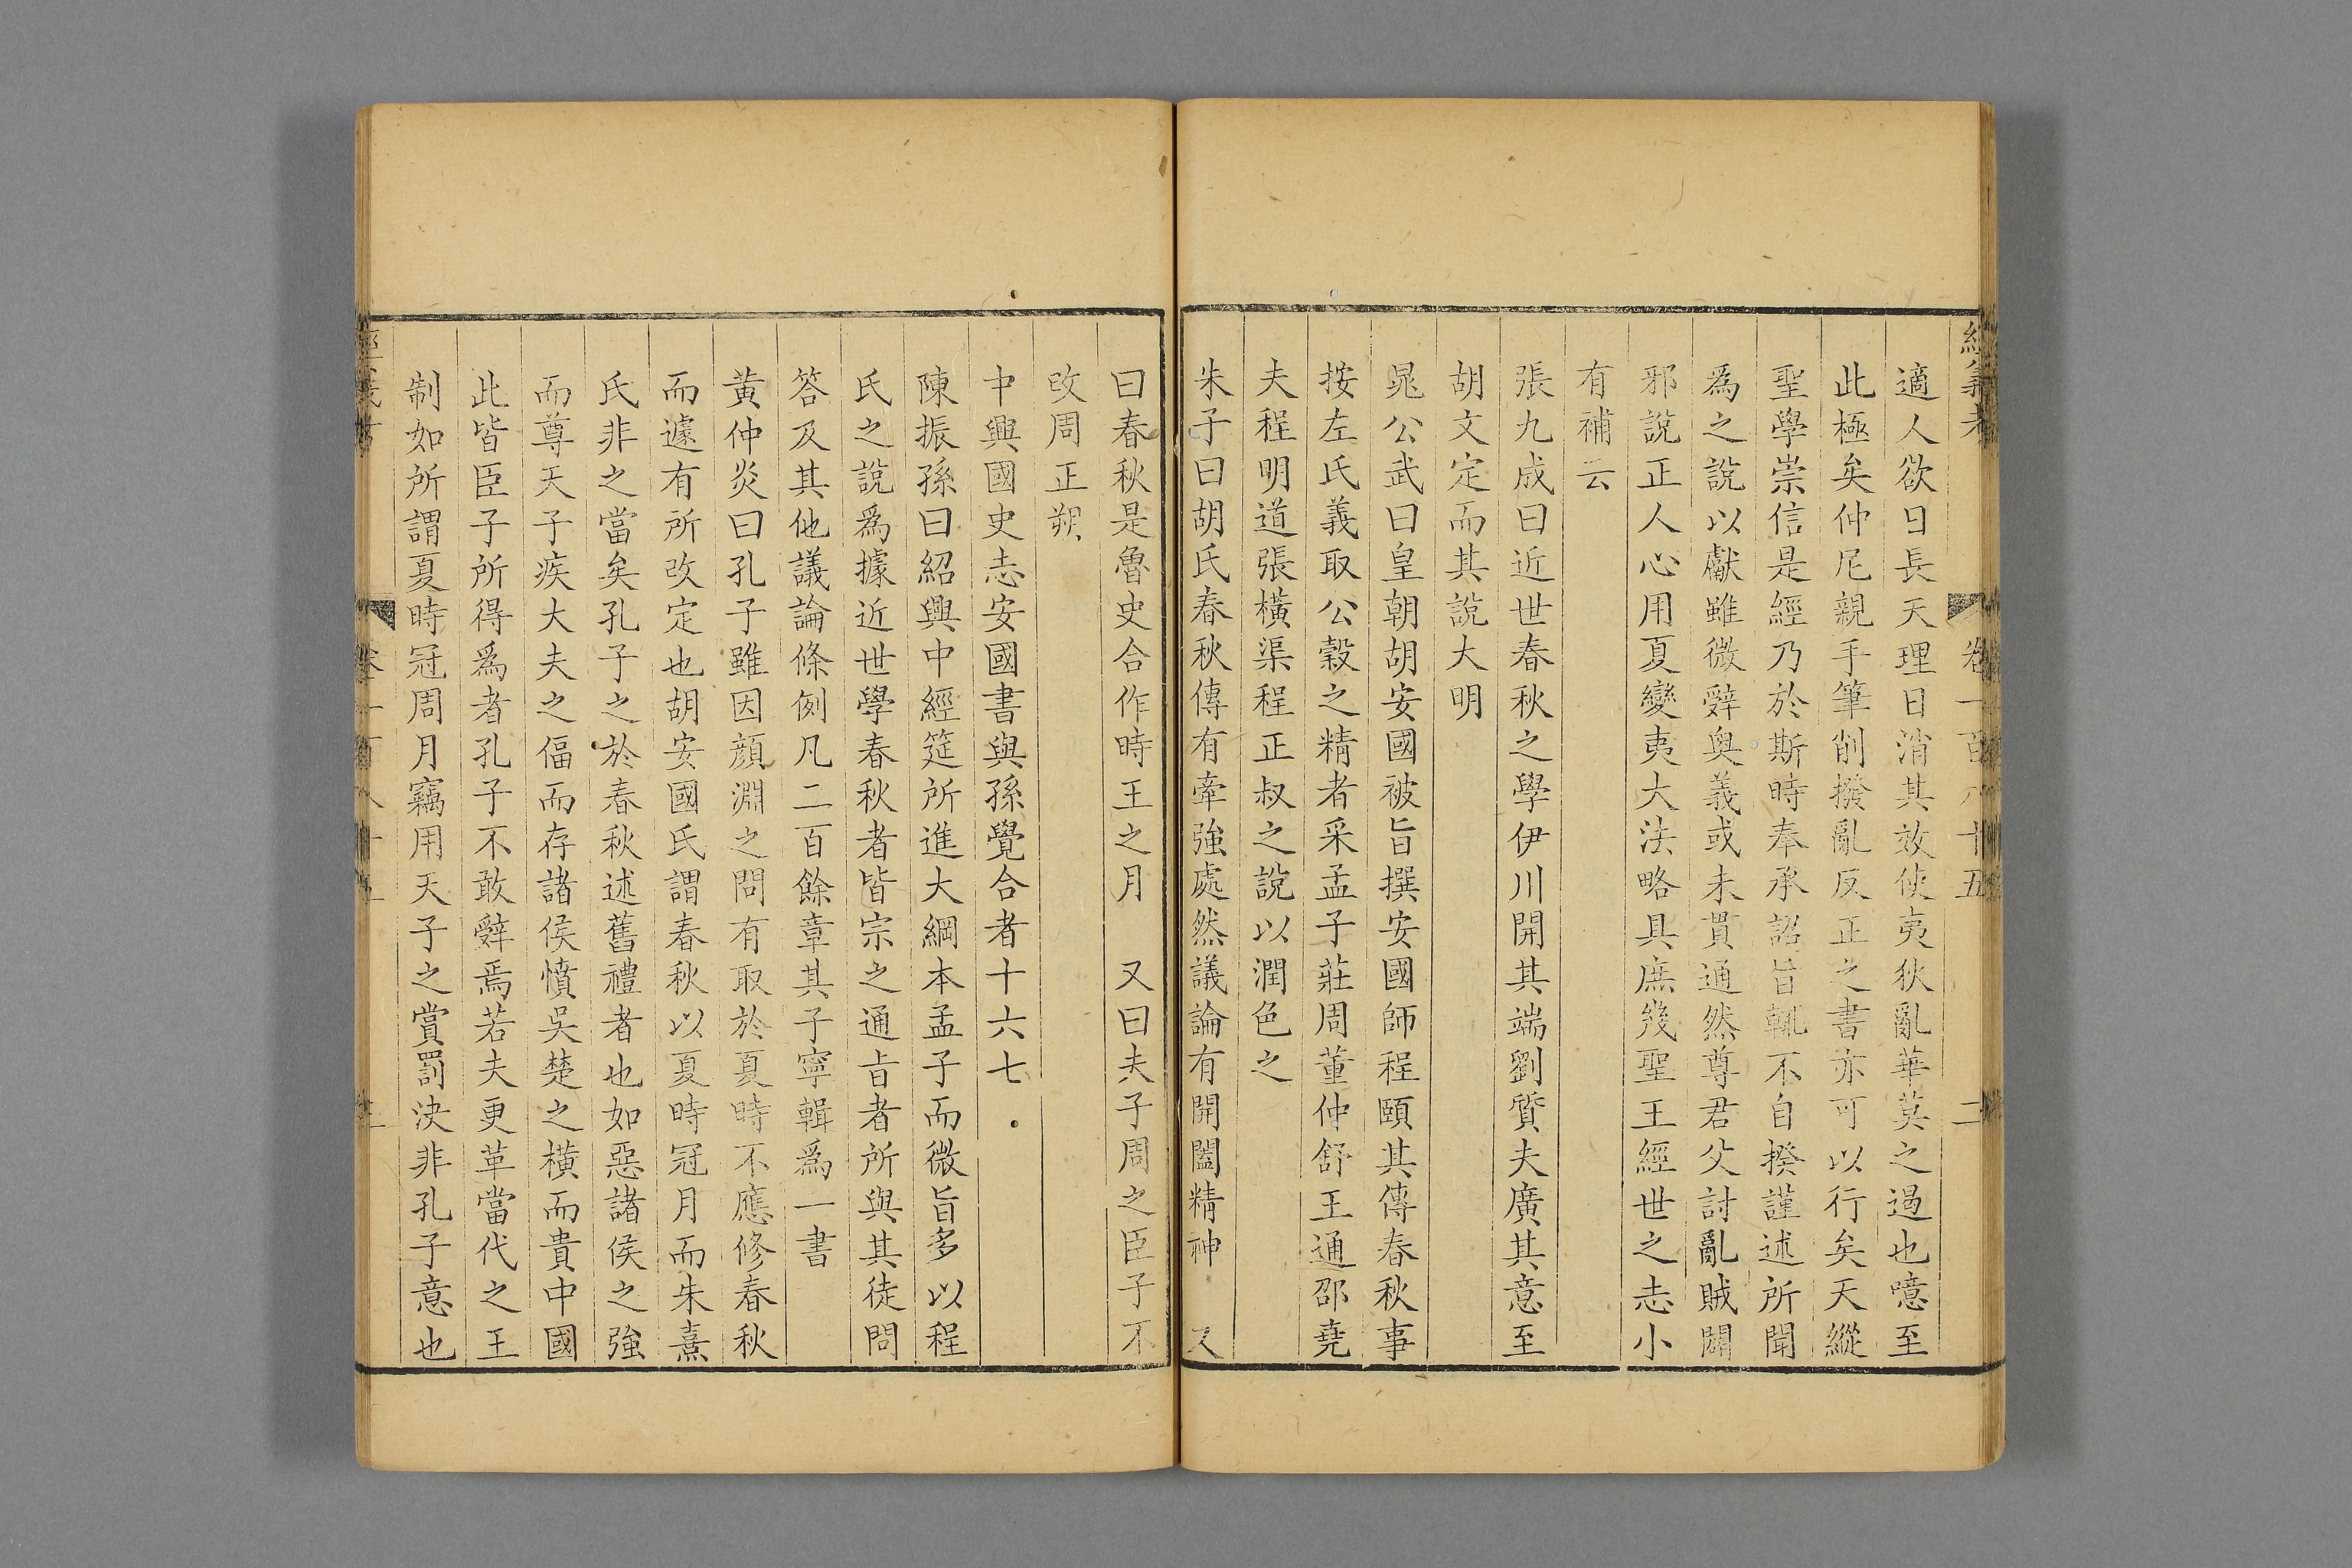 經義考 卷一百八十五 二
適人欲日長天理日消其效使夷狄亂華莫之遏也噫至
此極矣仲尼親手筆削撥亂反正之書亦可以行矣天縱
聖學崇信是經乃於斯時奉承詔旨輒不自揆謹述所聞
爲之說以獻雖微辭奧義或未貫通然尊君父討亂賊闢
邪說正人心用夏變夷大法略具庶幾聖王經世之志小
有補云
張九成曰近世春秋之學伊川開其端劉質夫廣其意至
胡文定而其說大明
晁公武曰皇朝胡安國被旨撰安國師程頤其傳春秋事
按左氏義取公穀之精者采孟子莊周董仲舒王通邵堯
夫程明道張橫渠程正叔之說以潤色之
朱子曰胡氏春秋傳有牽強處然議論有開闔精神 又
曰春秋是魯史合作時王之月 又曰夫子周之臣子不
改周正朔
中興國史志安國書與孫覺合者十六七
陳振孫曰紹興中經筵所進大綱本孟子而微旨多以程
氏之說爲據近世學春秋者皆宗之通旨者所與其徒問
答及其他議論條例凡二百餘章其子寧輯爲一書
黃仲炎曰孔子雖因顏淵之問有取於夏時不應修春秋
而遽有所改定也胡安國氏謂春秋以夏時冠月而朱熹
氏非之當矣孔子之於春秋述舊禮者也如惡諸侯之強
而尊天子疾大夫之偪而存諸侯憤吳楚之橫而貴中國
此皆臣子所得爲者孔子不敢辭焉若夫更革當代之王
制如所謂夏時冠周月竊用天子之賞罰決非孔子意也